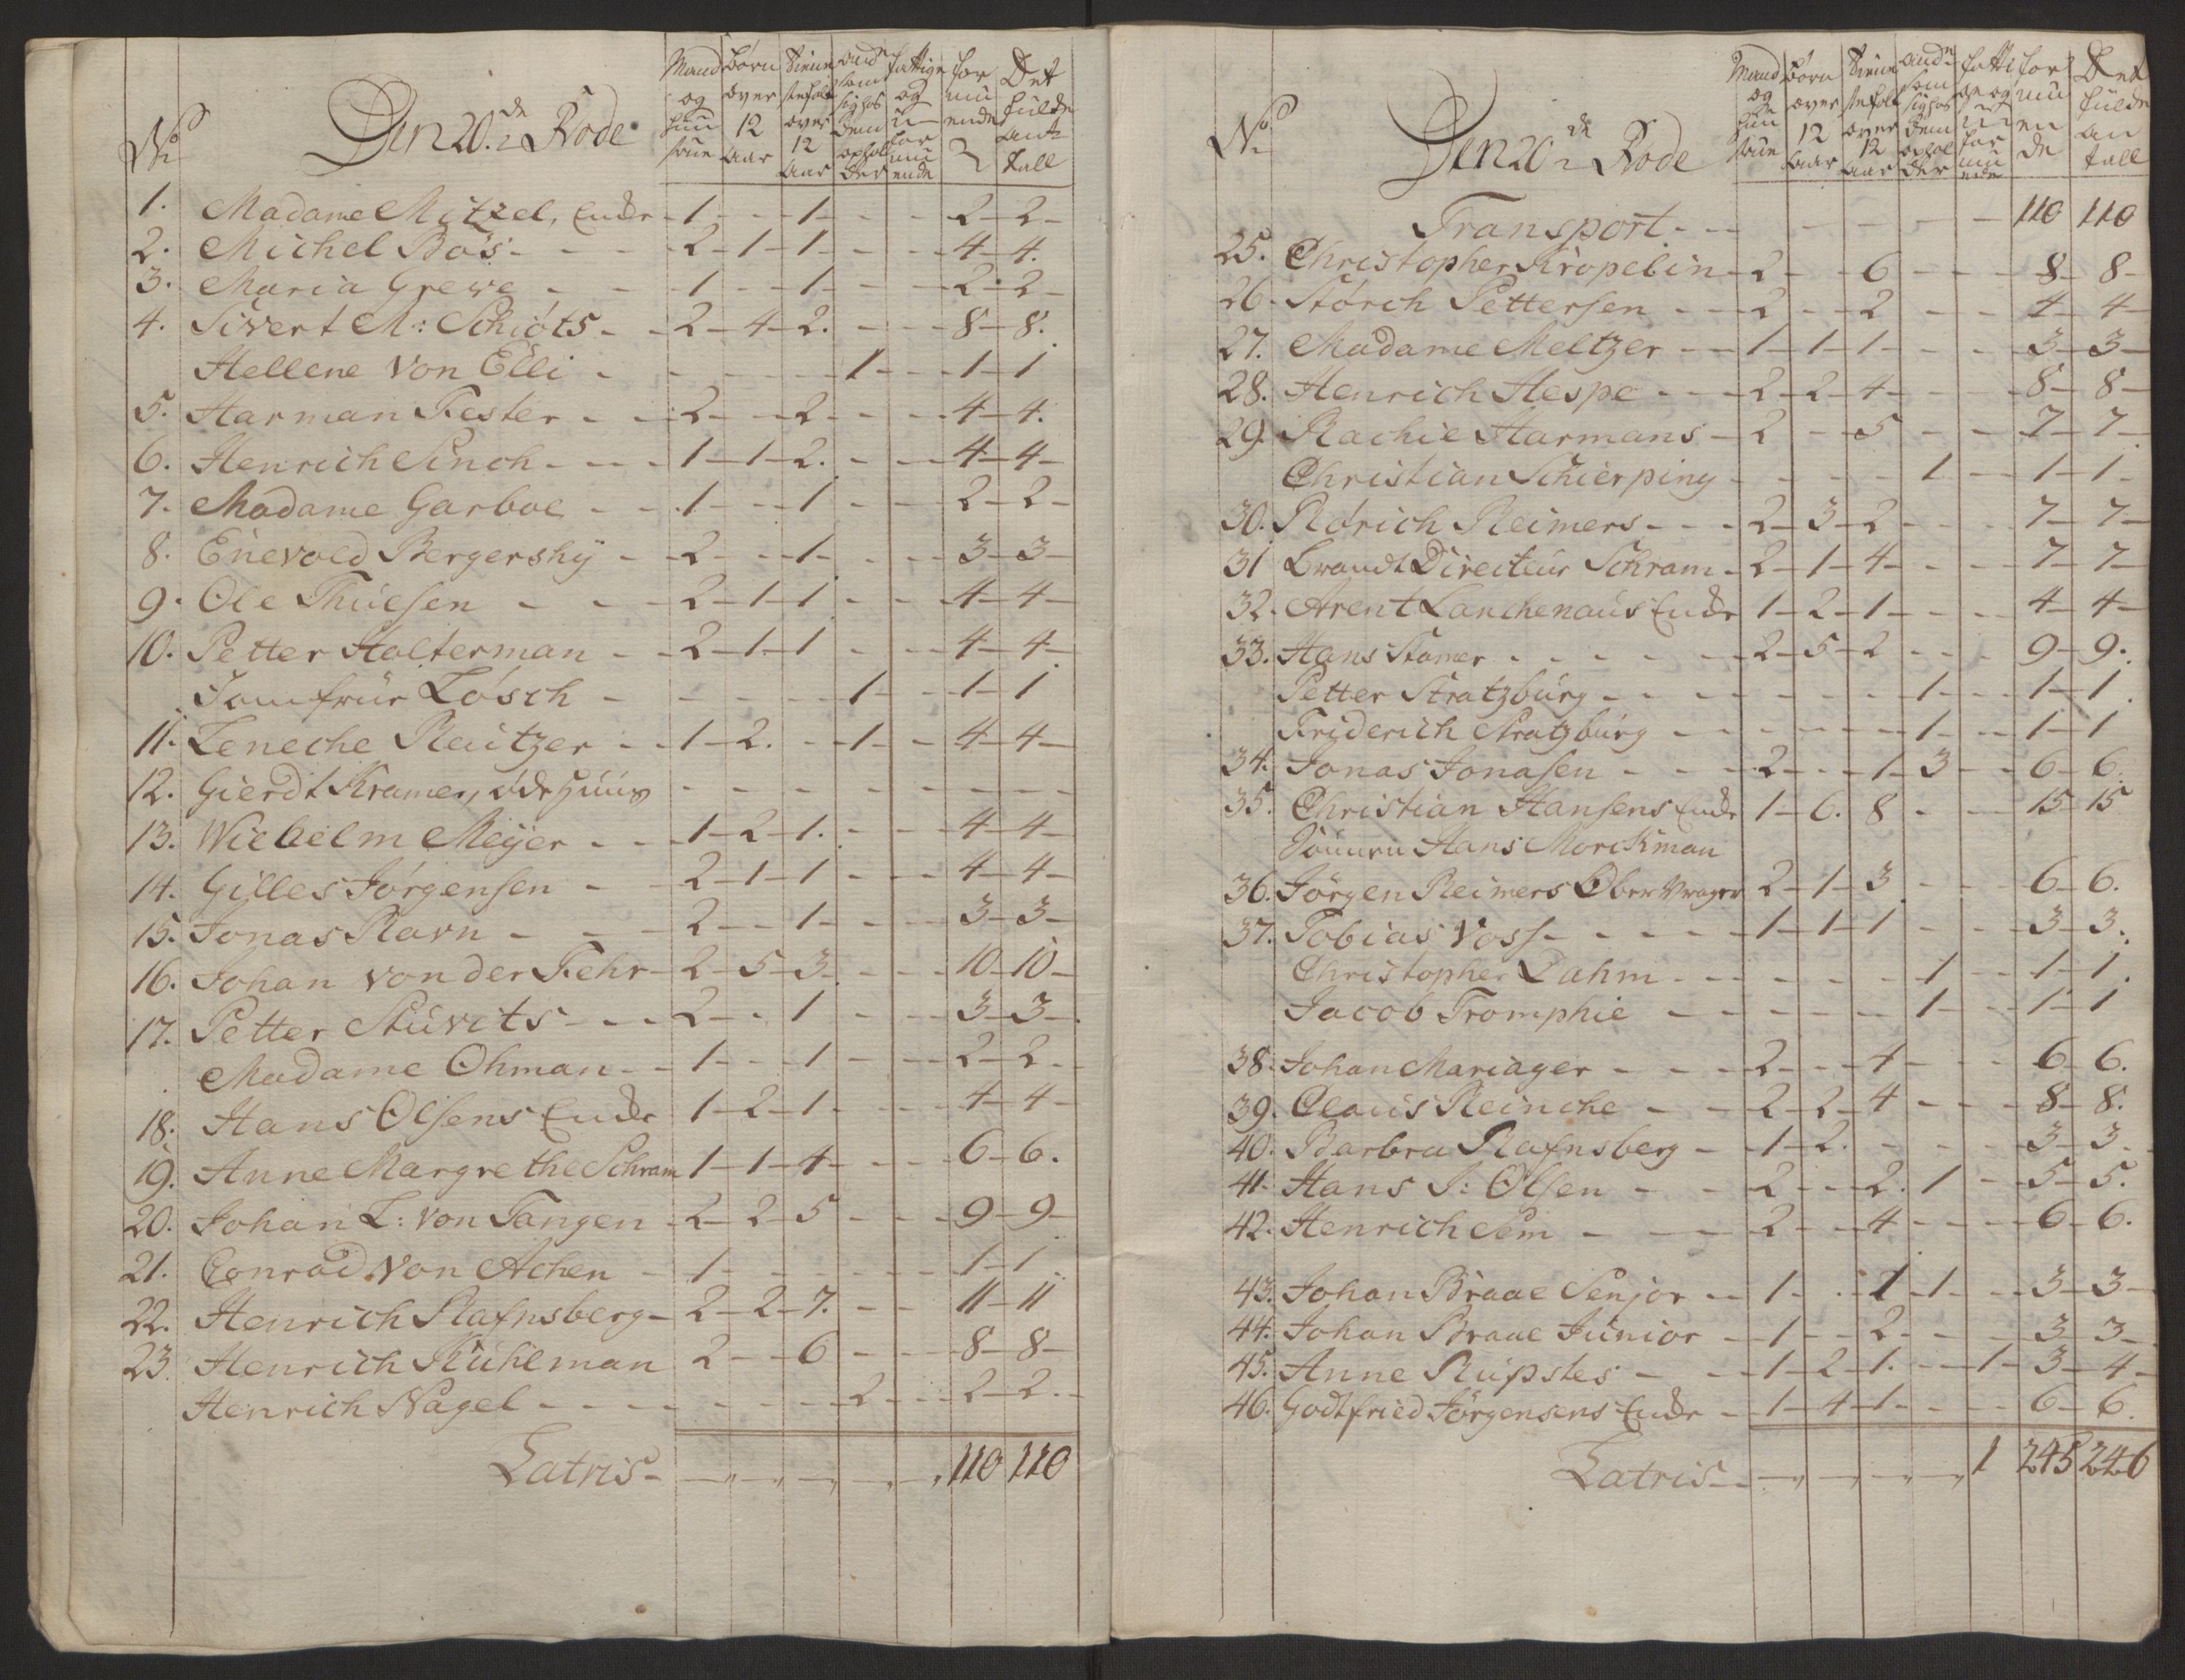 No
Den 20.de Rode
Mand og Huu stue
Børn over 12 Aar
Tiene stefolk over 12 Aar
And som sig hos dem ophol der
fattige og u for mu ende
for mu ende
Det fulde antall
1. Madame Mitzel, Encke - 1 - - 1 - - - 2 - 2 -
2. Michel Bøs - - - 2 - 1 - 1 - - - 4 - 4.
3. Maria Greve - - 1 - - 1 - - - 2 - 2 -
4. Sivert M: Schiøts - - 2 - 4 - 2. - - - 8 - 8.
Hellene Von Elli - - - - - - 1 - - 1 - 1
5. Harman Fester - - 2 - - 2 - - - 4 - 4.
6. Henrich Sinch - - - 1 - 1 - 2. - - - 4 - 4 -
7. Madame Garboe - - 1 - - 1 - - - 2 - 2 -
8. Enevold Bergershÿ - 2 - - 1 - - - 3 - 3 -
9. Ole Thuesen - - - 2 - 1 - 1 - - - 4 - 4 -
10. Petter Holterman - - 2 - 1 - 1 - - - 4 - 4 -
Jomfrue Løsch - - - - - 1 - - 1 - 1
11. Leneche Reitzer - - 1 - 2. - - 1 - - 4 - 4 -
12. Gierdt Kramer, øde Huus - - - - - - - -
13. Wilhelm Meÿer - - - 1 - 2 - 1. - - - 4 - 4 -
14. Gilles Jørgensen - - 2 - 1 - 1 - - - 4 - 4 -
15. Jonas Ravn - - - 2 - - 1 - - - 3 - 3 -
16. Johan von der Fehr - 2 - 5 - 3 - - - 10 - 10 -
17. Petter Stuvits - - - 2 - - 1 - - - 3 - 3 -
Madame Ohman - - 1 - - 1 - - - 2 - 2 -
18. Hans Olsens Encke 1 - 2 - 1 - - - 4 - 4 -
19. Anne Margrethe Schram 1 - 1 - 4 - - - 6 - 6.
20. Johan L: von Tangen - 2 - 2 - 5 - - - 9 - 9 -
21. Conrad von Achen - 1 - - - - - 1 - 1
22. Henrich Rafnsberg - 2 - 2 - 7. - - - 11 - 11
23. Henrich Kuhlman 2 - - 6 - - - 8 - 8 -
Henrich Nagel - - - - - - - 2 - - 2 - 2 -
Latris - 110 110
No
Den 20de Rode
Mand og Huu stue
Børn over 12 Aar
Tiene stefolk over 12 Aar
And som sig hos dem ophol der
fatti ge og u for mu ende
for mu en de
Det fulde an tall
Transport - - - - - - - 110 110
25. Christopher Kröpelin - 2 - - 6 - - - 8 - 8 -
26. Störch Pettersen - - 2 - - 2 - - - 4 - 4 -
27. Madame Meltzer - - 1 - 1 - 1 - - - 3 - 3 -
28. Henrich Hespe - - - 2 - 2 - 4 - - - 8 - 8 -
29. Rachie Harmans - 2 - - 5 - - - 7 - 7 -
Christian Schierping - - - - - 1 - - 1 - 1 -
30. Rørich Reimers - - - 2 - 3 - 2 - - - 7 - 7 -
31 Brandt Directeur Schram - 2 - 1 - 4 - - - 7 - 7 -
32. Arent Lanckenaus Encke 1 - 2 - 1 - - - 4 - 4 -
33. Hans Stamer - - - - - 2 - 5 - 2 - - - 9 - 9.
Petter Stratzburg - - - - - - 1 - - 1 - 1.
Friderich Stratzburg - - - - - - 1 - - 1 - 1
34. Jonas Jonasen - - - 2 - - 1 - 3 - - 6 - 6.
35. Christian Hansens Encke 1 - 6. 8 - - - 15 - 15
Hans Morckman
36. Jörgen Reimers Ober Vrager 2 - 1 - 3 - - - 6 - 6.
37. Tobias Voss - - - - - 1 - 1 - 1 - - - 3 - 3.
Christopher Dahm - - - - - - 1 - - 1 - 1.
Jacob Tromphie - - - - - 1 - - 1 - 1
38. Johan Mariager - - - 2 - - 4 - - - 6 - 6.
39. Claus Reincke - - 2 - 2 - 4 - - - 8 - 8.
40. Barbra Rafnsberg - 1 - 2. - - - - 3 - 3 -
41. Hans J: Olsen - - 2 - - 2. 1 - - 5 - 5.
42. Henrich Sem - - - 2 - - 4 - - - 6 - 6.
43. Johan Braae Senjor - - 1 - - 1 - 1 - - 3 - 3 -
44. Johan Braae Junior - 1 - - 2 - - - 3 3 -
45. Anne Rupstes - - 1 - 2 - 1. - - 1 - 3 - 4 -
46. Godtfried Jörgensens Encke - 1 - 4 - 1 - - - 6 - 6.
Latris - - 1 245 246